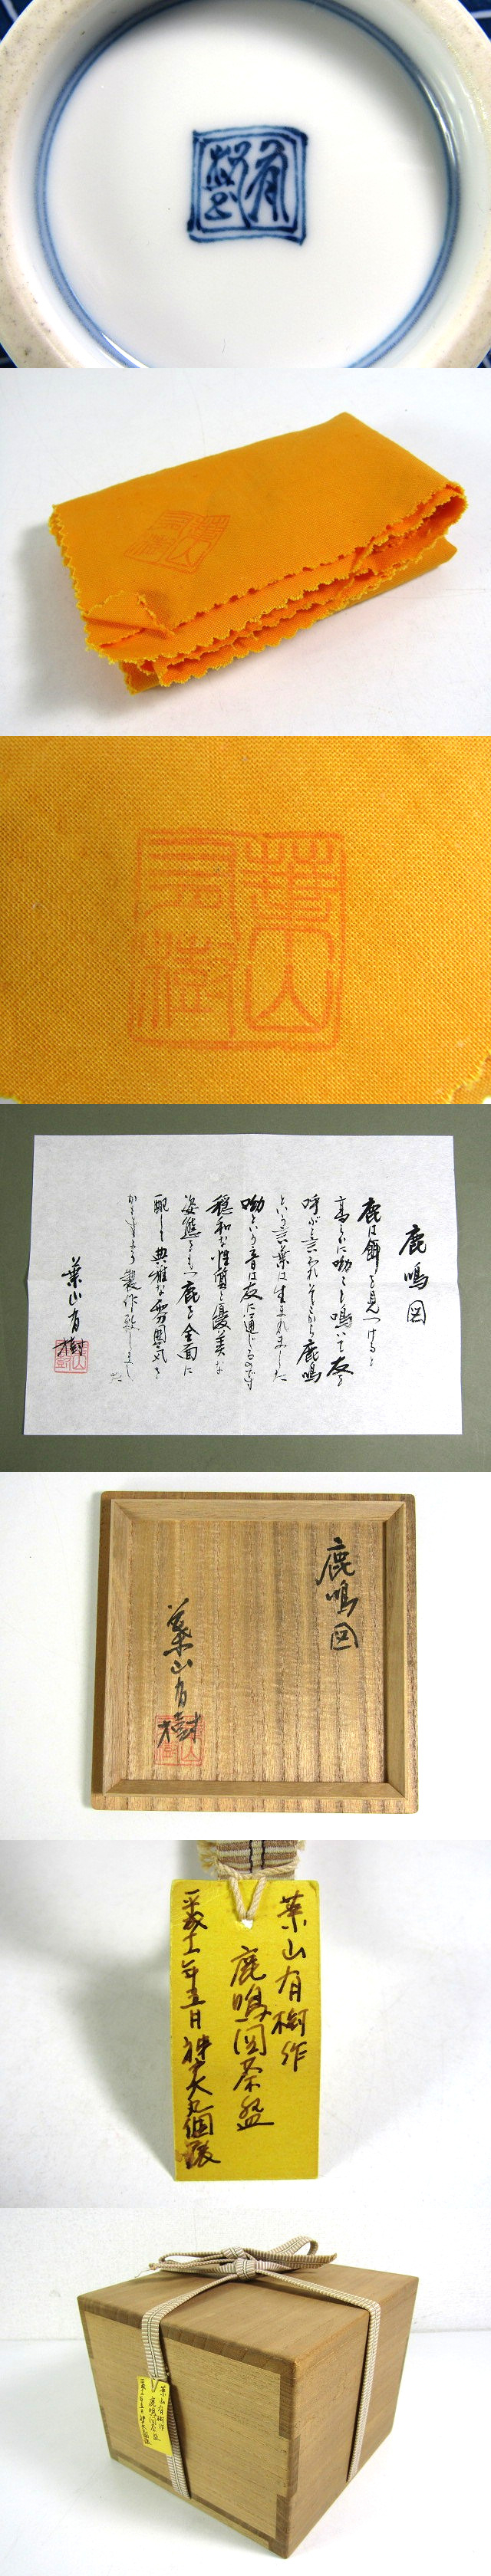 有樹
葉山
有樹
鹿鳴図
鹿は餌を見つけると
高らかに呦々と鳴いて友を
呼ぶと言われそこから鹿鳴
という言葉は生まれました
呦という音は友に通じるのです
穏和な性質と優美な
姿態をもつ鹿を全面に
配し典雅な雰囲気を
かもすよう製作致しまし
た
葉山有樹
鹿鳴図
葉山有樹
葉山有樹作
鹿鳴図茶盌
平成十一年五月神戸大丸個展
葉山有樹作
鹿鳴図茶盌